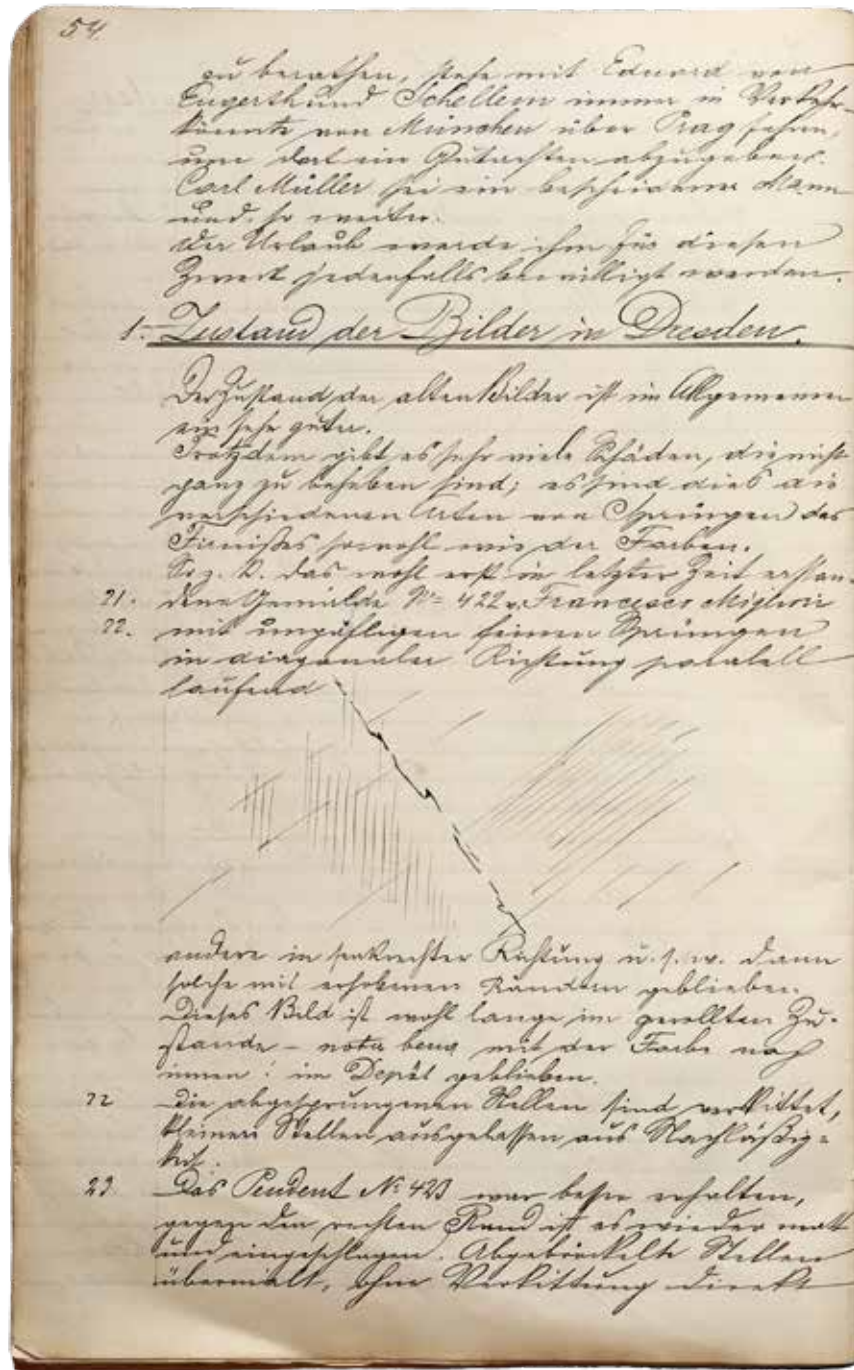 54
zu berathen, stehe mit Eduard von
Engerth und Schellein immer in Verkehr
könnte von München über Prag fahren,
um dort ein Gutachten abzugeben.
Carl Müller sei ein bescheidener Mann
und so weiter.
Der Urlaub werde ihm für diesen
Zweck jedenfalls bewilligt werden.
1. Zustand der Bilder in Dresden.
Der Zustand der alten Bilder ist im Allgemeinen
ein sehr guter.
Trotzdem gibt es sehr viele Schäden, die nicht
ganz zu beheben sind; es sind dies die
verschiedenen Arten von Sprüngen des
Firnißes sowohl wie der Farben.
So z. B. das wohl erst in letzter Zeit erstan-
21. dene Gemälde No 422 v. Francesco Migliori
22. mit unzähligen feinen Sprüngen
in diagonaler Richtung paralell
laufend
andere in senkrechter Richtung u. s. w. dann
solche mit erhobenen Rändern geblieben.
Dieses Bild ist wohl lange im gerollten Zu-
stande – nota bene mit der Farbe nach
innen! im Depôt geblieben.
22 Die abgesprungenen Stellen sind verkittet,
kleinere Stellen ausgelassen aus Nachläßig-
keit.
23. Das Pendent No 423 war besser erhalten,
gegen den rechten Rand ist es wieder matt
und eingeschlagen. Abgebröckelte Stellen
übermalt, ohne Verkittung direkt